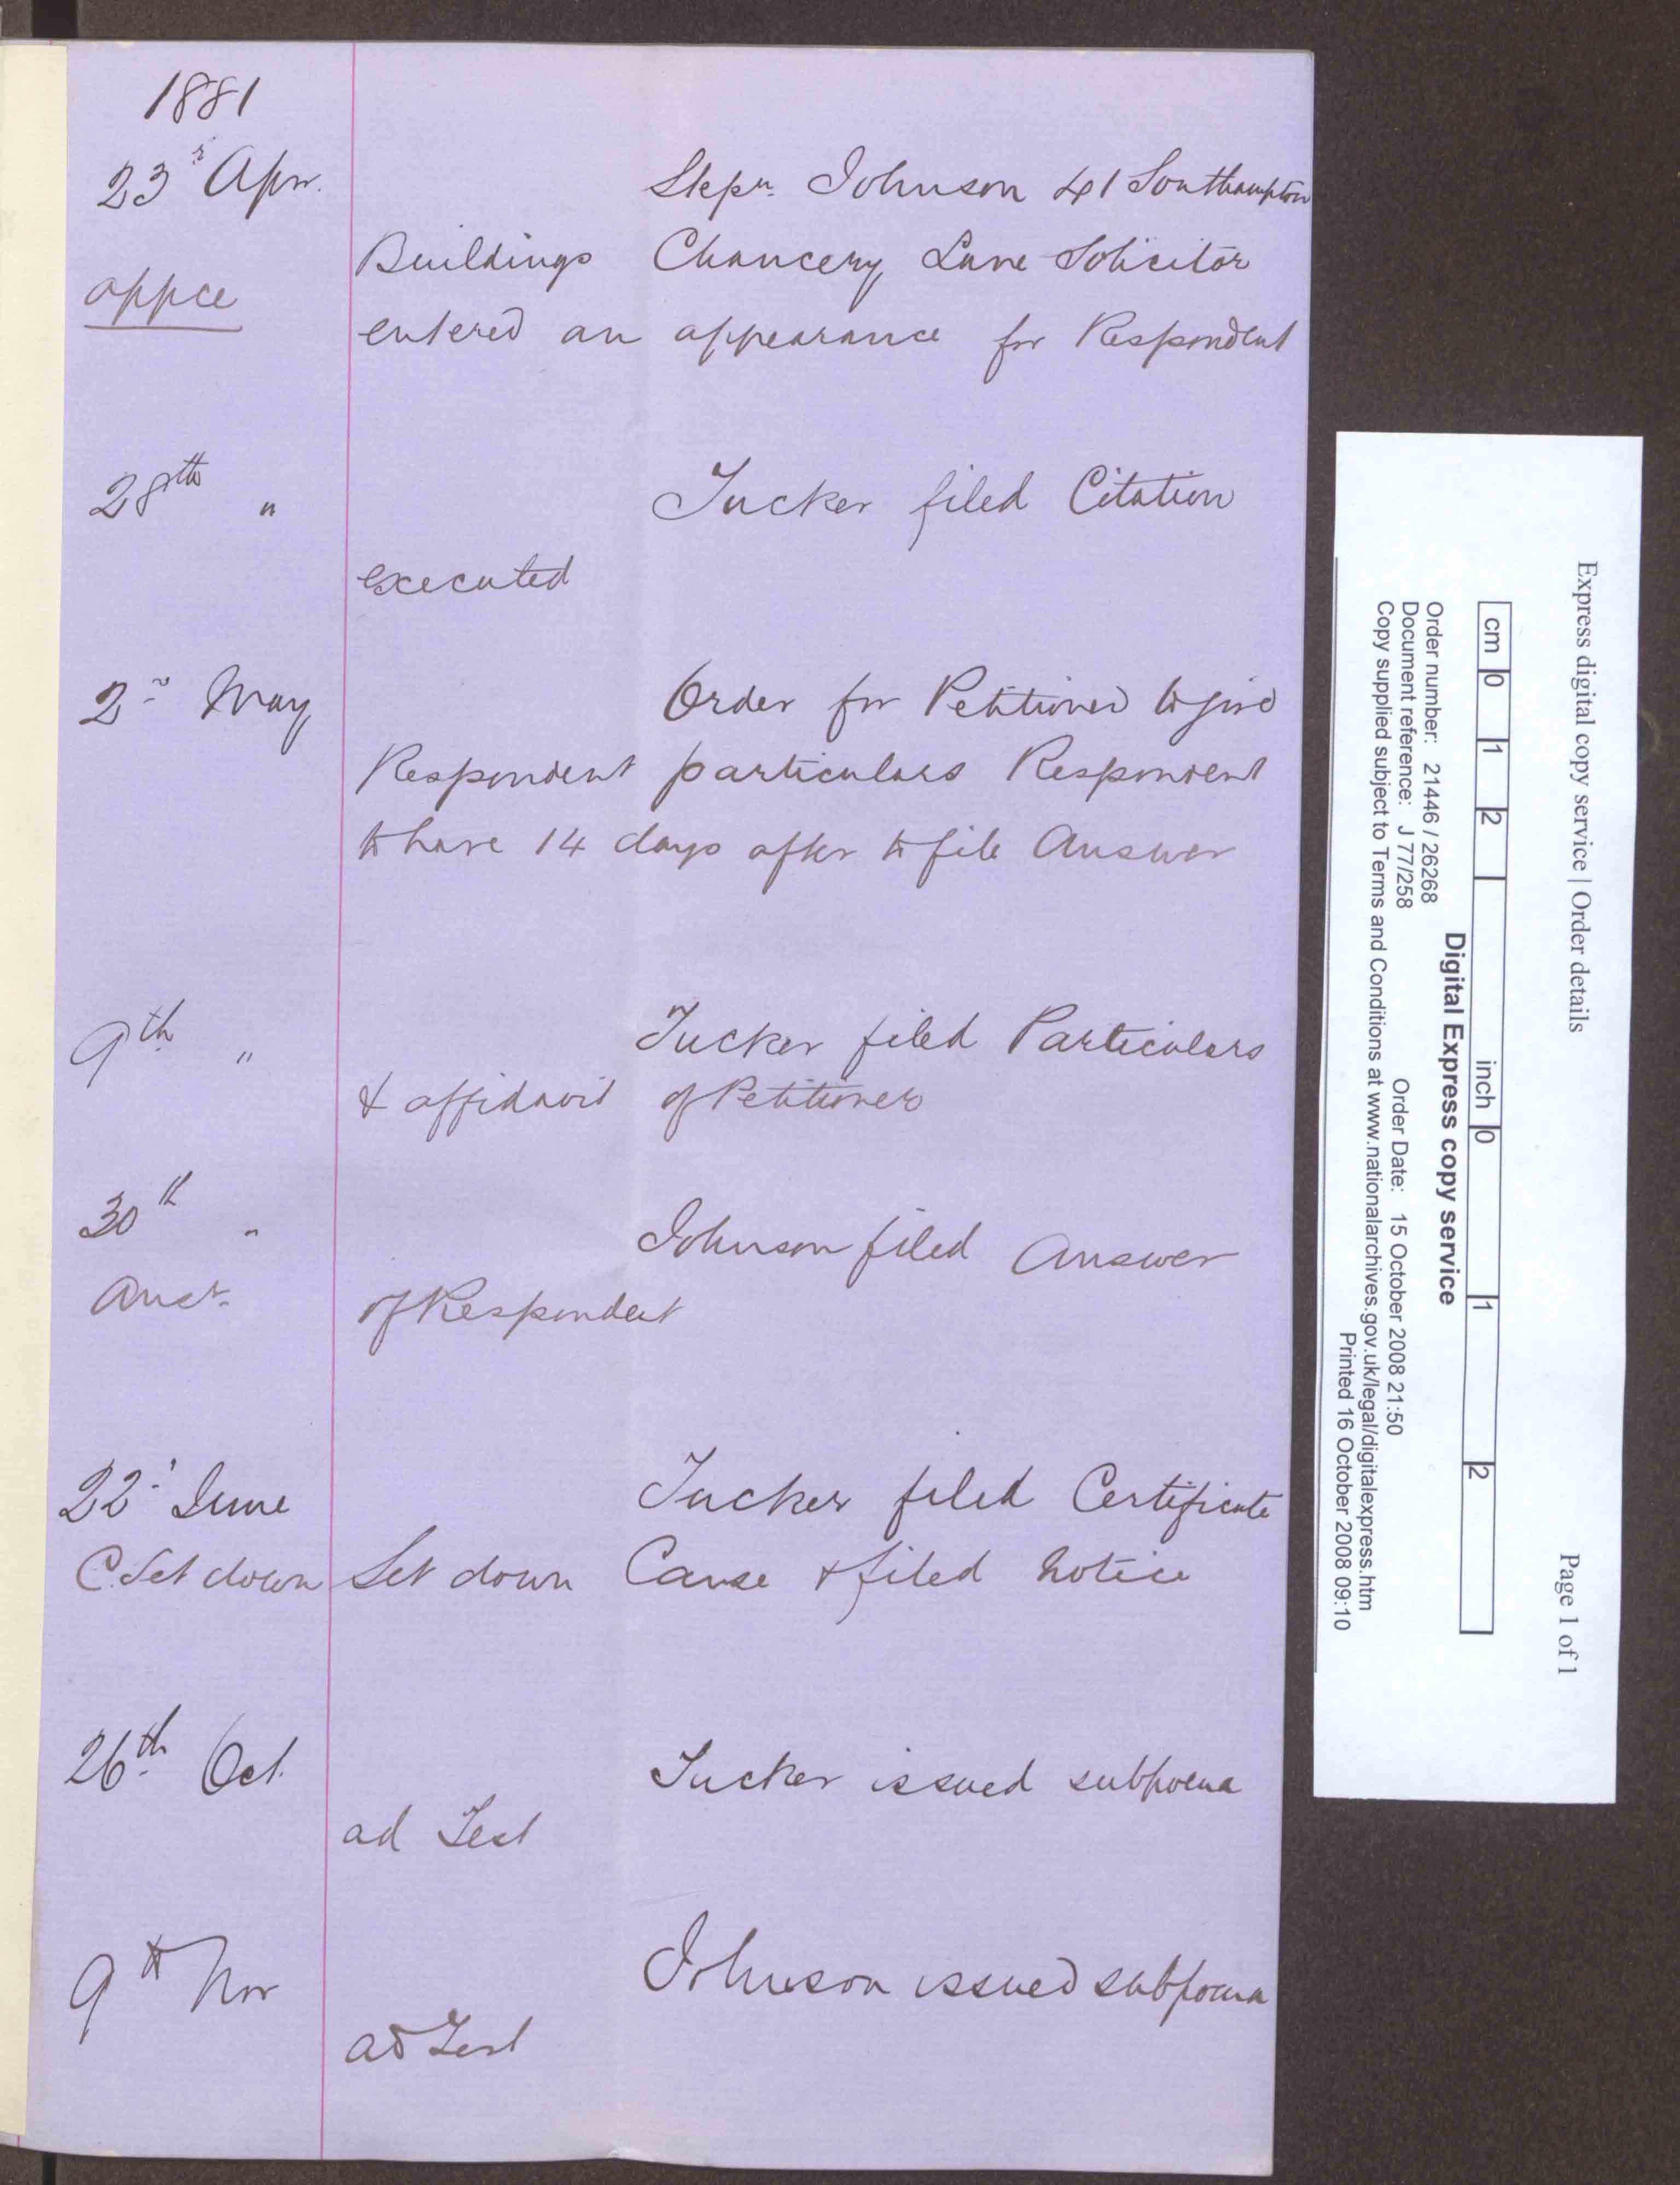 1881
23rd Apr. Stepn. Johnson 41 Southampton
appce Buildings Chancery Lane Solicitor
entered an appearance for Respondent
28th " Tucker filed Citation
executed
2nd May Order for Petitioner to give
Respondent particulars Respondent
to have 14 days after to file Answer
9th " Tucker filed Particulars
& affidavit of Petitioner
30th " Johnson filed Answer
Ansr. of Respondent
22d June Tucker filed Certificate
C. Set down Set down Cause & filed notice
26th Oct. Tucker issued subpoena
ad Test
9th Nov Johnson issued subpoena
ad Test
Express digital copy service | Order details
Page 1 of 1
cm 0 1 2 inch 0 1 2
Digital Express copy service
Order number: 21446 / 26268
Order Date: 15 October 2008 21:50
Document reference: J 77/258
Copy supplied subject to Terms and Conditions at www.nationalarchives.gov.uk/legal/digitalexpress.htm
Printed 16 October 2008 09:10